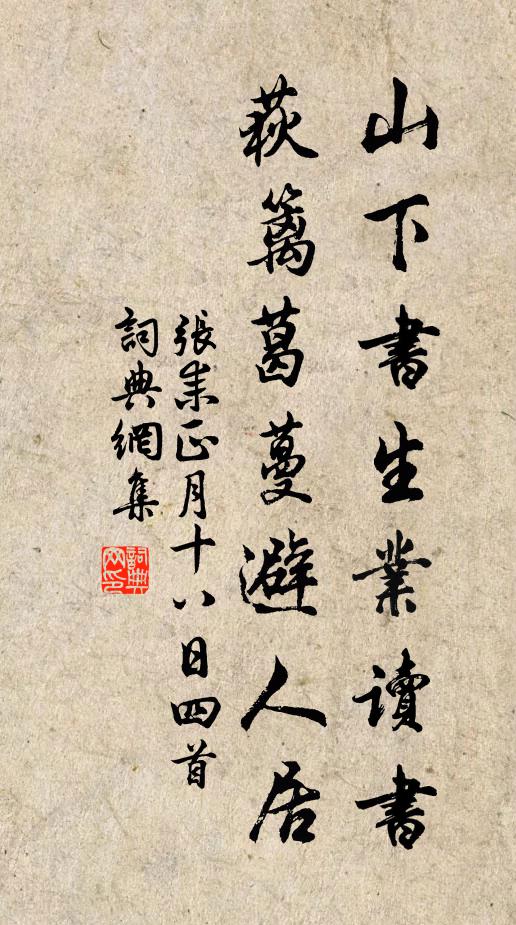 山下書生業讀書
荻籬葛蔓避人居
張耒正月十八日四首
詞典網集
詞典網印